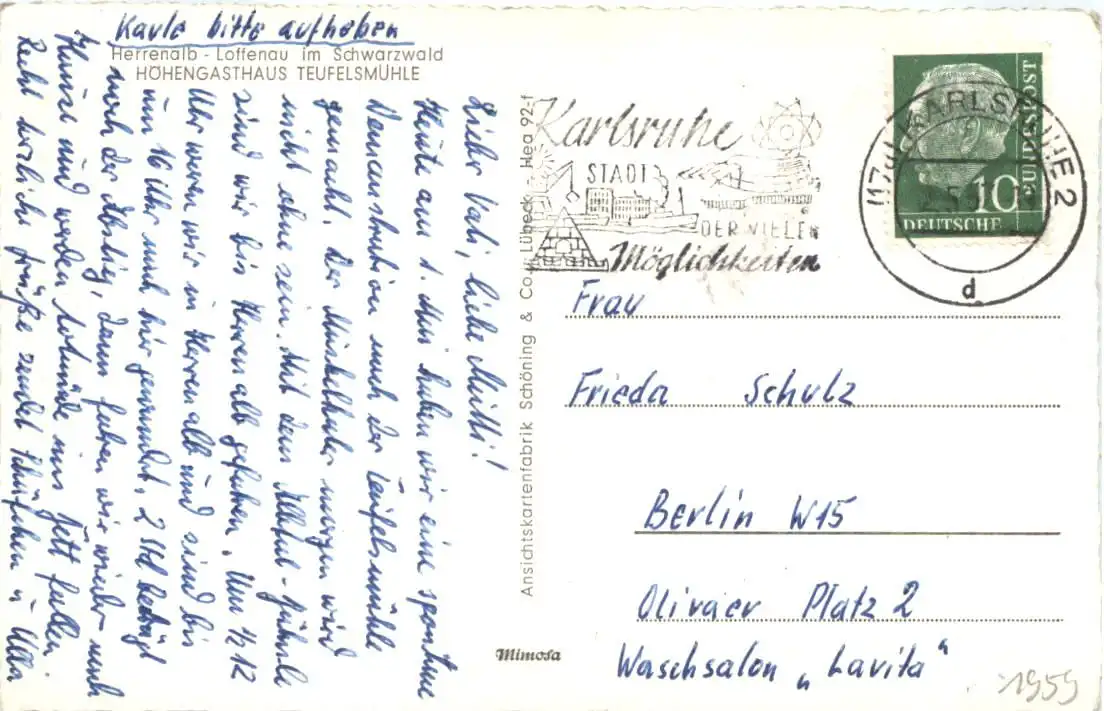 Karte bitte aufheben
Herrenalb - Loffenau im Schwarzwald
HÖHENGASTHAUS TEUFELSMÜHLE
Lieber Vati, liebe Mutti!
Heute am 1. Mai haben wir eine spontane
Demonstration nach der Teufelsmühle
gemacht. Der Muskelkater morgen wird
nicht ohne sein. Mit dem Albtal-
sind wir bis Herrenalb gefahren. Um 1/2 12
Uhr waren wir in Herrenalb und sind bis
um 16 Uhr nach hier gewandert. 2 Std beträgt
noch der Abstieg, dann fahren wir wieder nach
Hause und werden todmüde ins Bett fallen
Recht herzliche Grüße sendet u Udi
Ansichtskartenfabrik Schöning & Co Lübeck - Hea 92-f
Mimosa
Karlsruhe
STADT
DER VIELEN
Möglichkeiten
(17a) KARLSRUHE 2
d
10
DEUTSCHE
BUNDESPOST
Frau
Frieda Schulz
Berlin W15
Olivaer Platz 2
Waschsalon „Lavita"
1959